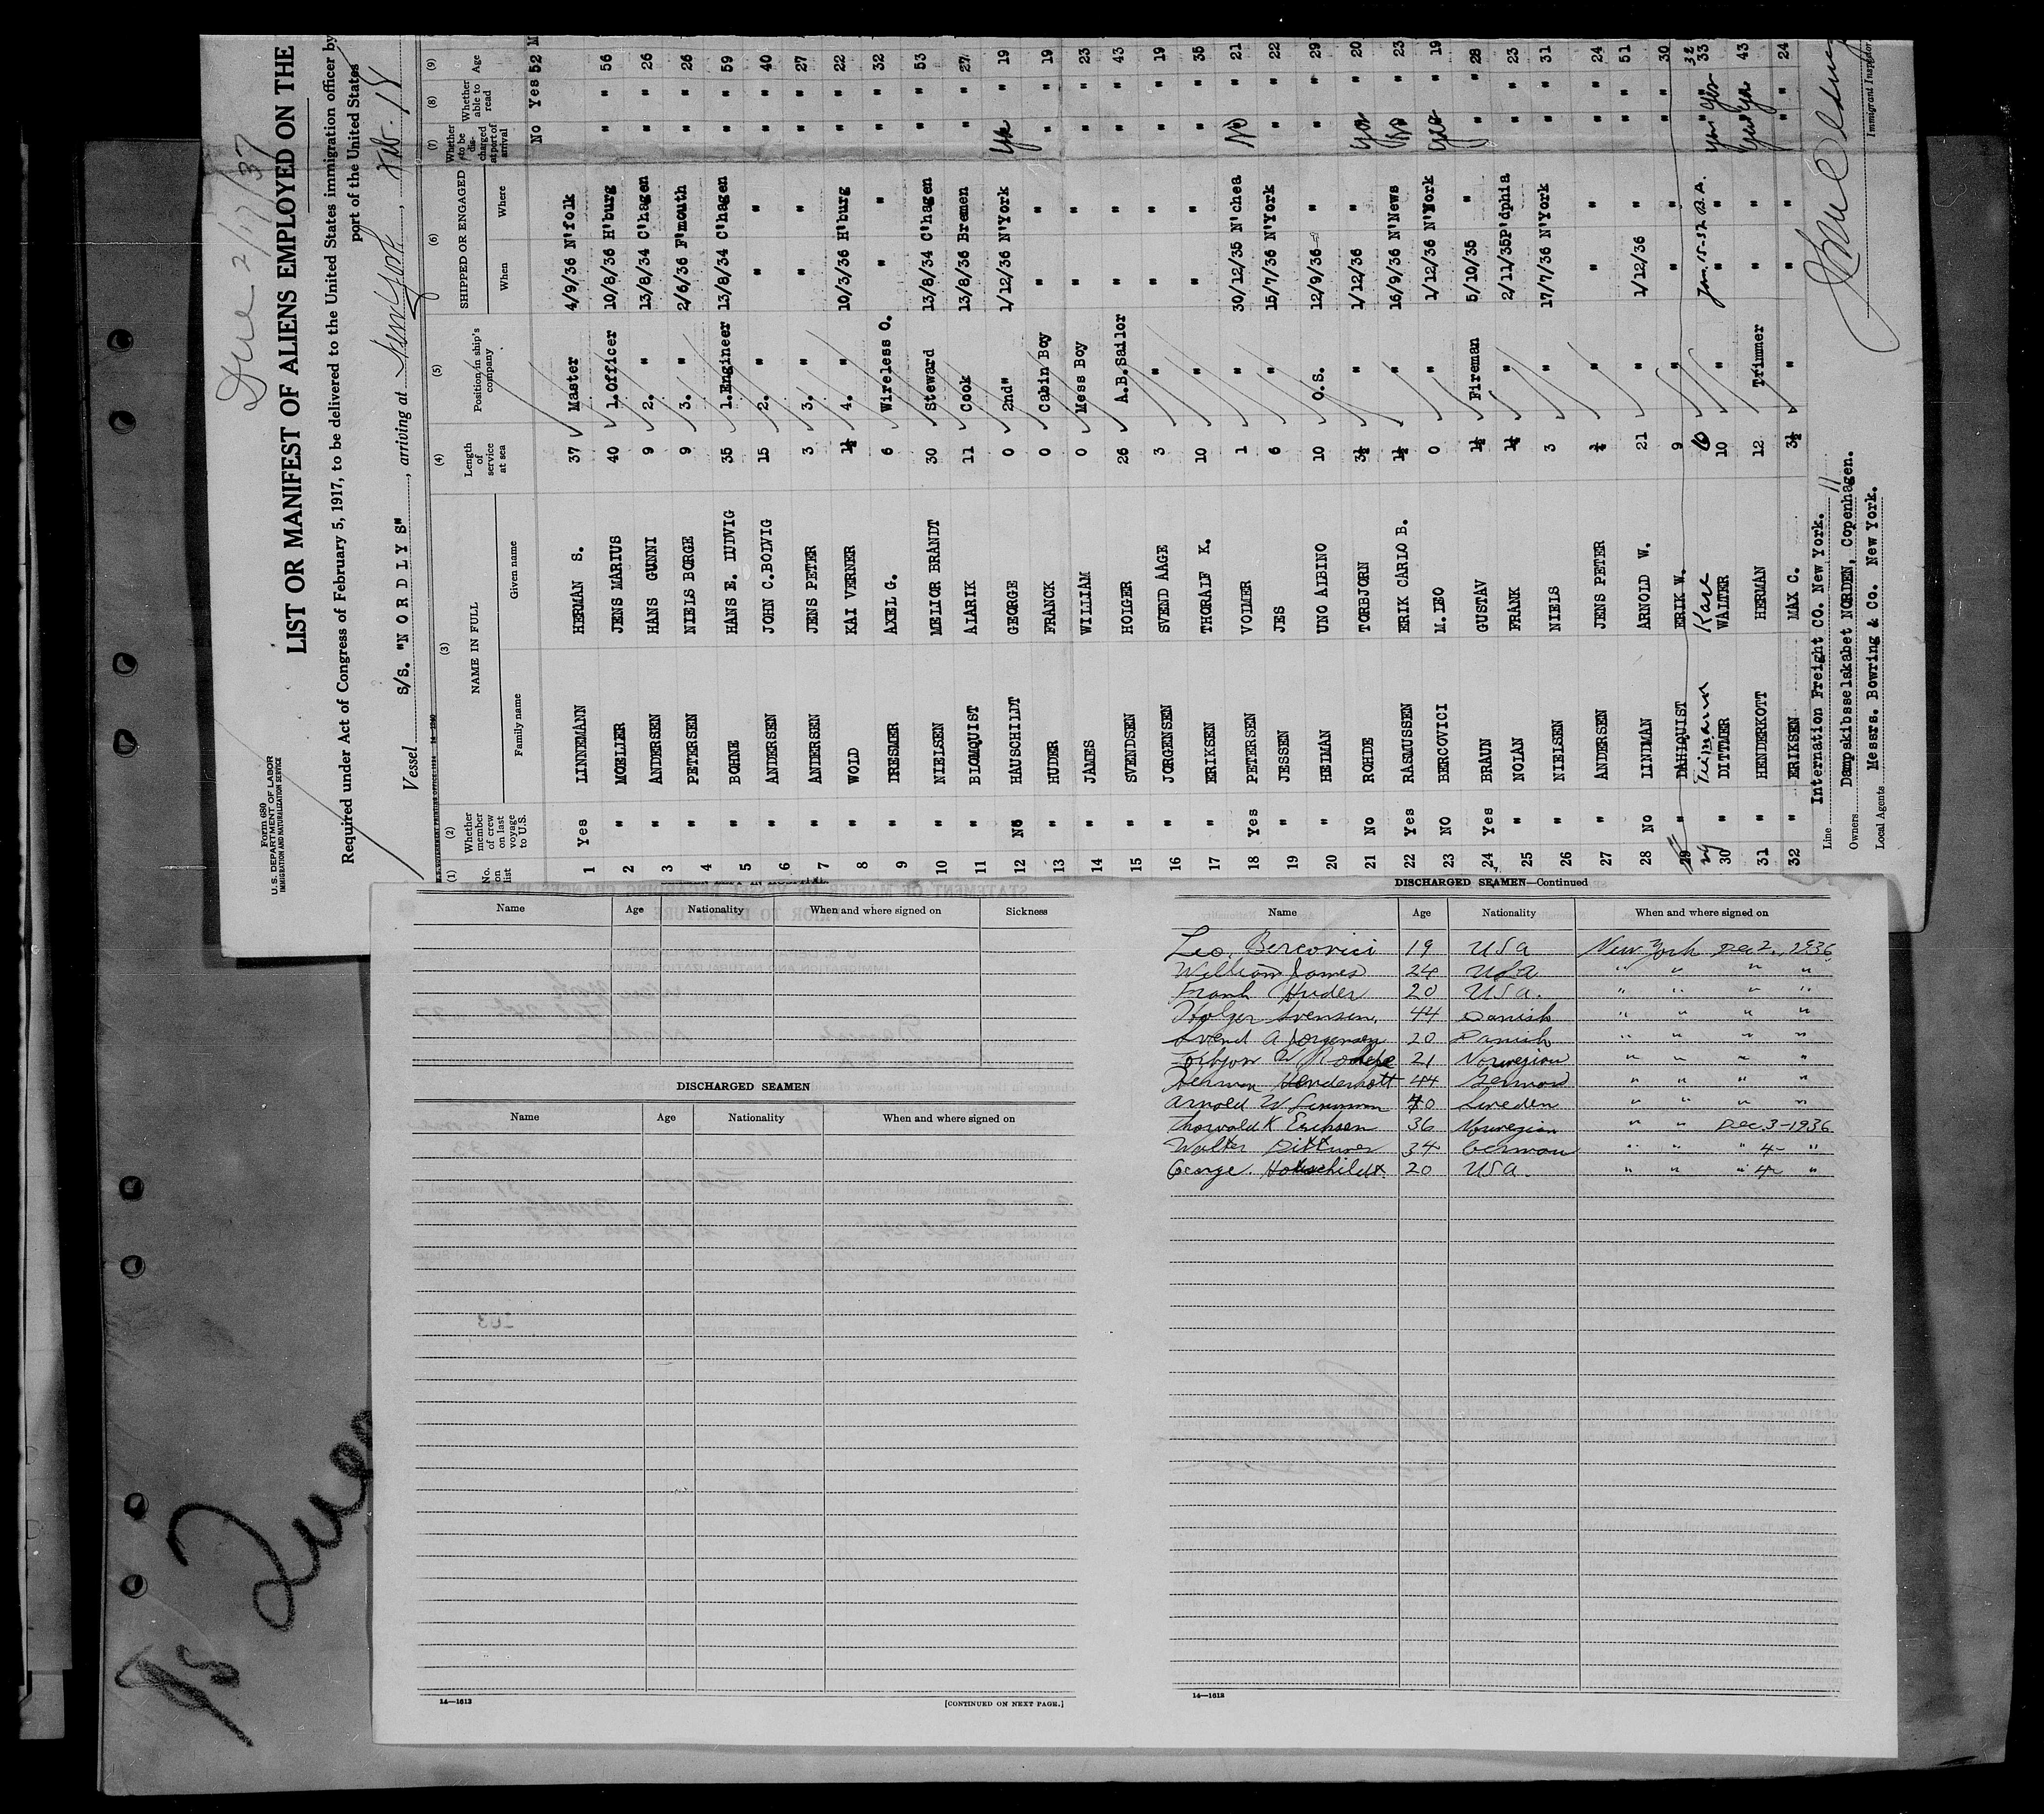 Due 2/17/37
Form 680
U. S. DEPARTMENT OF LABOR
IMMIGRATION AND NATURALIZATION SERVICE
LIST OR MANIFEST OF ALIENS EMPLOYED ON THE
Required under Act of Congress of February 5, 1917, to be delivered to the United States immigration officer by
port of the United States
Vessel S/S. "N O R D L Y S", arriving at New York, Feb. 18
(1) (2) (3) (4) (5) (6) (7) (8) (9)
No. on list Whether member of crew on last voyage to U.S. NAME IN FULL Family name Given name Length of service at sea Position in ship's company SHIPPED OR ENGAGED When Where Whether to be discharged at port of arrival Whether able to read Age
1 Yes LINNEMANN HERMAN S. 37 Master 4/9/36 N'folk No Yes 52 M
2 " MOELLER JENS MARIUS 40 1.Officer 10/8/36 H'burg " " 56
3 " ANDERSEN HANS GUNNI 9 2. " 13/8/34 C'hagen " " 26
4 " PETERSEN NIELS BORGE 9 3. " 2/6/36 F'mouth " " 26
5 " BOHNE HANS E. LUDVIG 35 1.Engineer 13/8/34 C'hagen " " 59
6 " ANDERSEN JOHN C.BOLVIG 15 2. " " " " " 40
7 " ANDERSEN JENS PETER 3 3. " " " " " 27
8 " WOLD KAI VERNER 1½ 4. " 10/3/36 H'burg " " 22
9 " DRESMER AXEL G. 6 Wireless O. " " " " 32
10 " NIELSEN MELIOR BRANDT 30 Steward 13/8/34 C'hagen " " 53
11 " BLOMQUIST ALARIK 11 Cook 13/8/36 Bremen " " 27
12 No HAUSCHILDT GEORGE 0 2nd" 1/12/36 N'York Yes " 19
13 " HUDER FRANCK 0 Cabin Boy " " " " 19
14 " JAMES WILLIAM 0 Mess Boy " " " " 23
15 " SVENDSEN HOLGER 26 A.B.Sailor " " " " 43
16 " JORGENSEN SVEND AAGE 3 " " " " " 19
17 " ERIKSEN THORALF K. 10 " " " " " 35
18 Yes PETERSEN VOLMER 1 " 30/12/35 N'chea No " 21
19 " JESSEN JES 6 " 15/7/36 N'York " " 22
20 " HEIMAN UNO ALBINO 10 O.S. 12/9/36 " " " 29
21 No ROHDE TORBJORN 3½ " 1/12/36 " Yes " 20
22 Yes RASMUSSEN ERIK CARLO B. 1½ " 16/9/36 N'News No " 23
23 NO BERCOVICI M. LEO 0 " 1/12/36 N'York Yes " 19
24 Yes BRAUN GUSTAV 1½ Fireman 5/10/35 " " " 28
25 " NOLAN FRANK 1½ " 2/11/35 P'dphia " " 23
26 " NIELSEN NIELS 3 " 17/7/36 N'York " " 31
27 " ANDERSEN JENS PETER ½ " " " " " 24
28 No LINDMAN ARNOLD W. 21 " 1/12/36 " " " 51
29 " DAHLQUIST ERIK W. 9 " " " " " 30
29 Kare 10 Jan. 15-37 B.A. 32
30 " DITTMER WALTER 10 " " " Yes Yes 33
31 " HENDERKOTT HERMAN 12 Trimmer " " Yes Yes 43
32 " ERIKSEN MAX C. 3½ " " " " " 24
Line International Freight CO. New York.
Owners Dampskibsselskabet NORDEN, Copenhagen.
Local Agents Messrs. Bowring & Co. New York.
Immigrant Inspector
Name Age Nationality When and where signed on Sickness
DISCHARGED SEAMEN
Name Age Nationality When and where signed on
14—1613
[CONTINUED ON NEXT PAGE.]
DISCHARGED SEAMEN—Continued
Name Age Nationality When and where signed on
Leo. Bercovici 19 USA New York Dec 2, 1936
William James 24 USA " " " "
Frank Huder 20 USA. " " " "
Holger Svensen, 44 Danish " " " "
Svend A Jorgensen 20 Danish " " " "
Torbjorn Rohde 21 Norwegian " " " "
Herman Henderkott 44 German " " " "
Arnold W Linnman 40 Sweden " " " "
Thorvald K Erichsen 36 Norwegian " " Dec. 3-1936
Walter Dittmer 34 German " " " 4- "
George. Hotschildt. 20 USA. " " " 4- "
14—1613